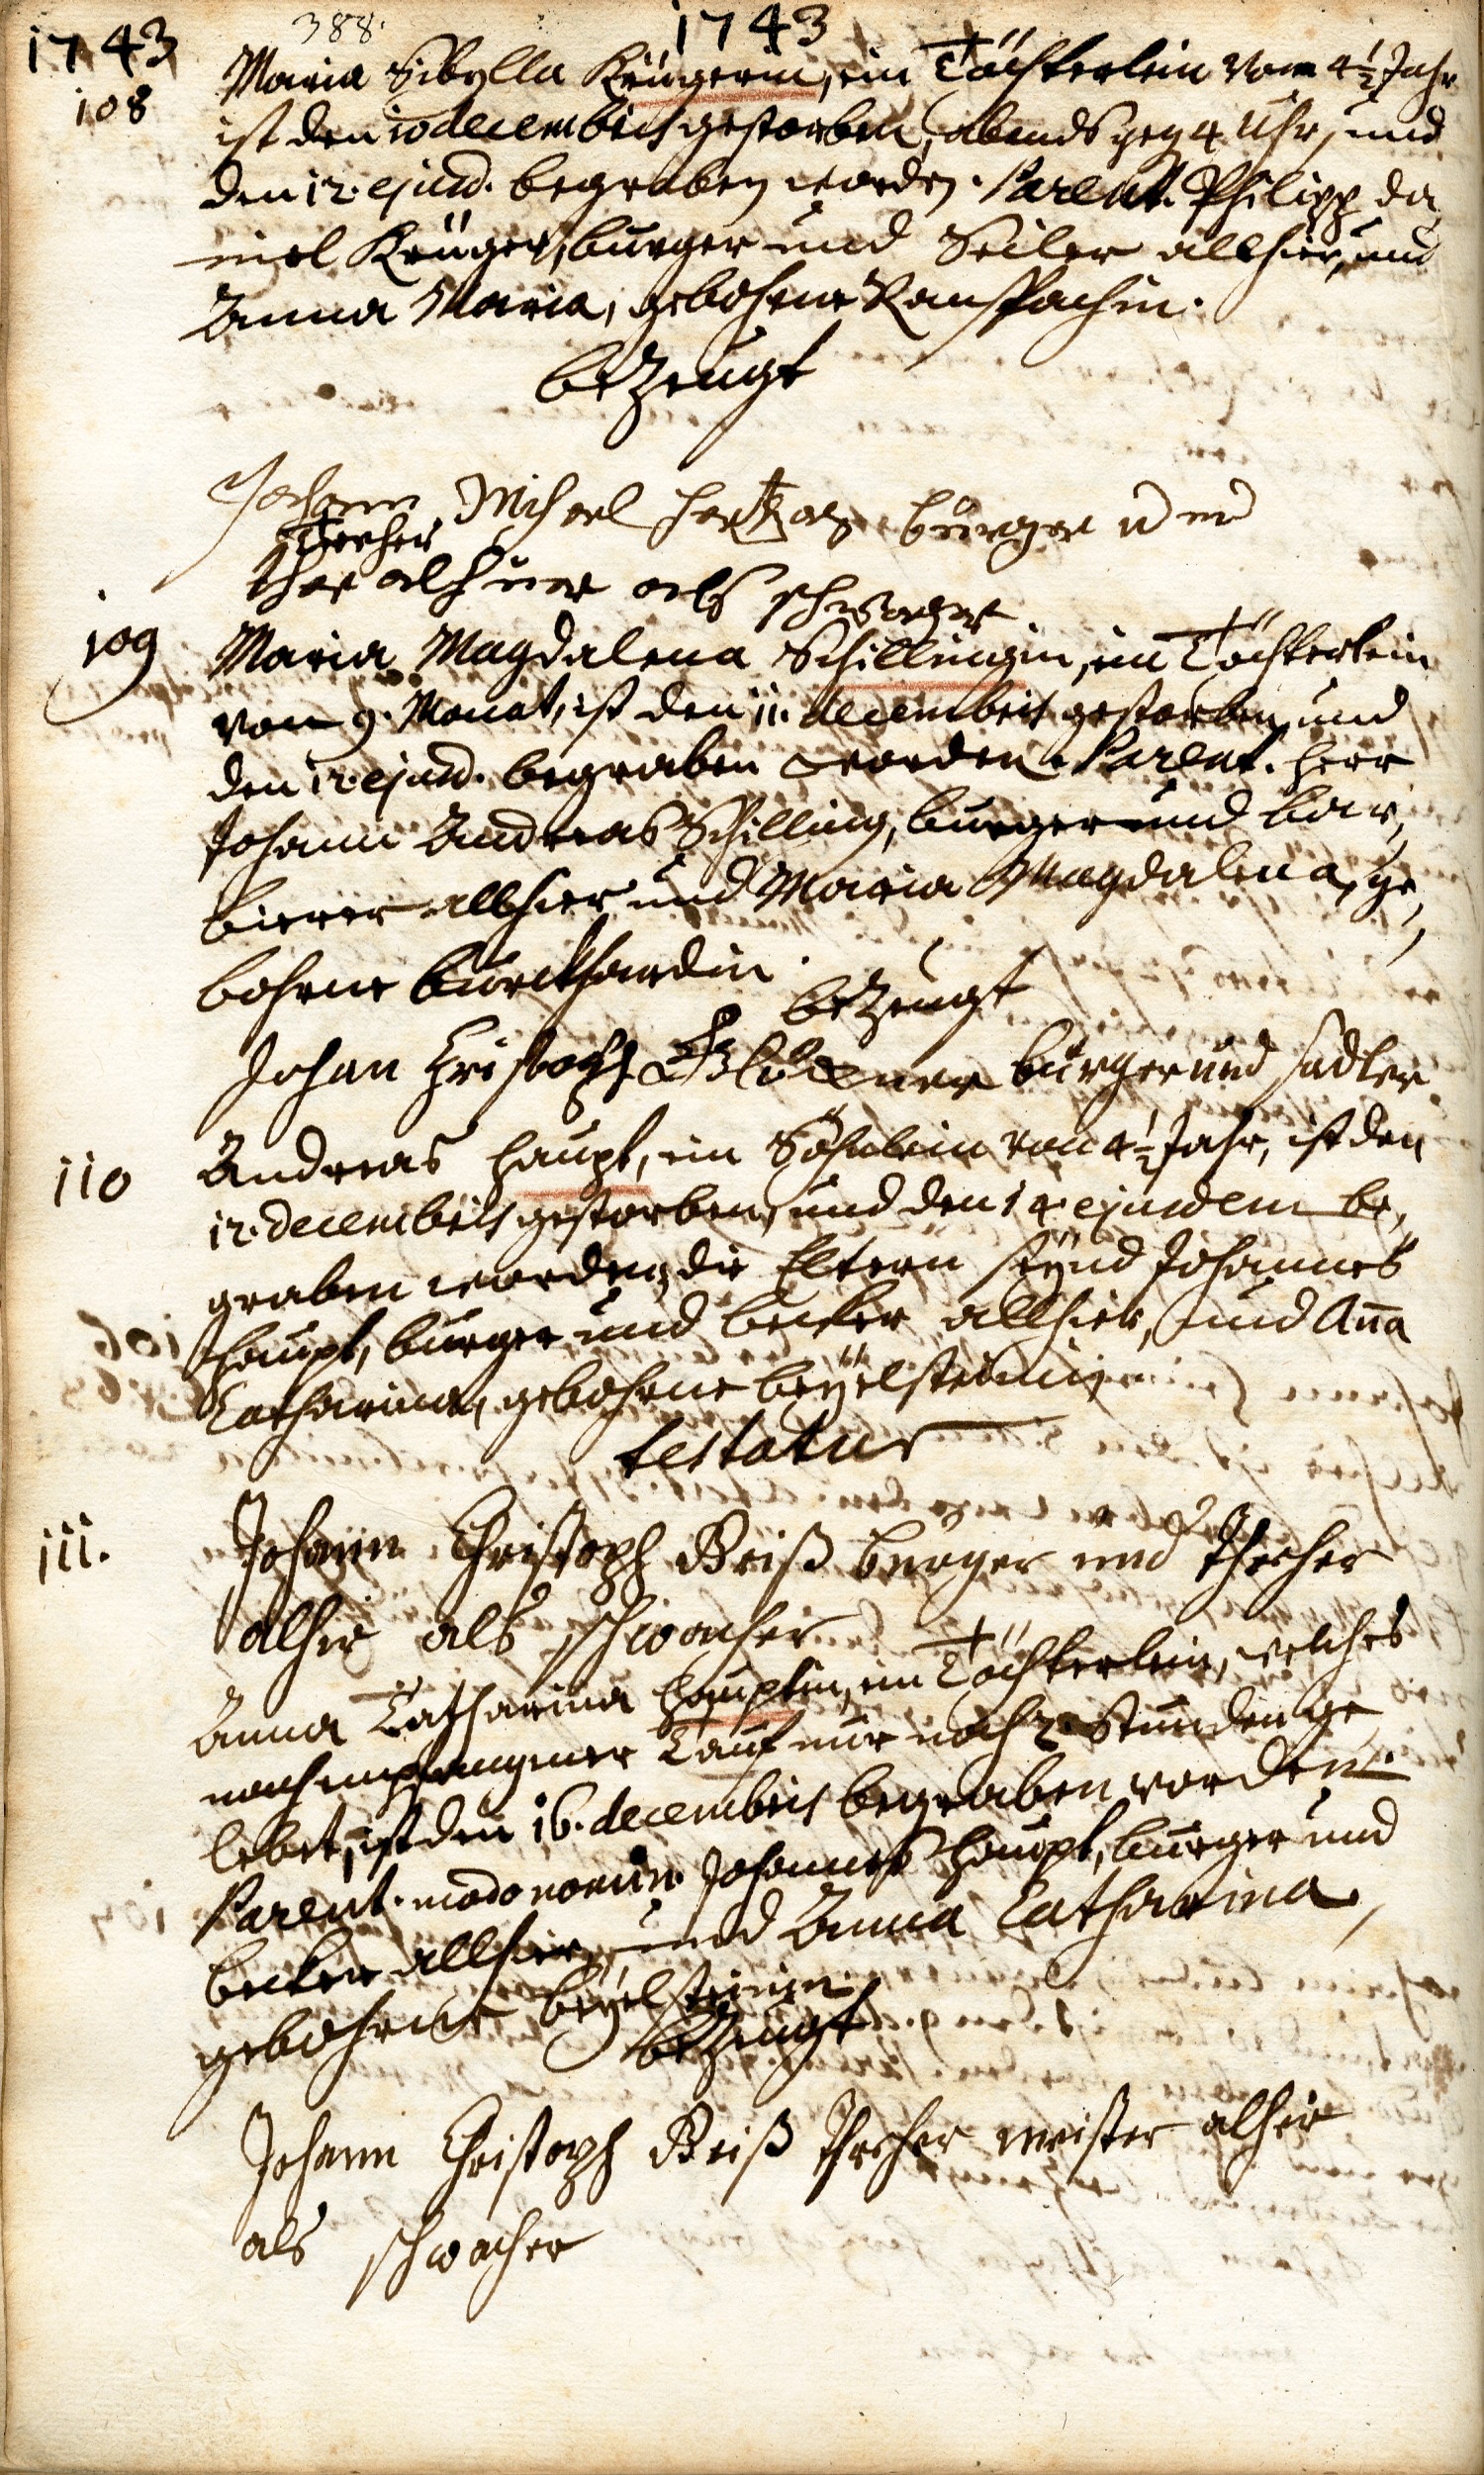 388.
1743 1743
108 Maria Sibylla Krügerin, ein Töchterlein von 4½ Jahr
ist den 10 decembris gestorben, abends geg 4 Uhr, und
den 12. ejusd. begraben worden. Parent. Philipp Da
niel Krüger, burger und Seiler allhier, und
Anna Maria, gebohrne Ranspachin.
bezeugt
Johann Michael Hertzog burger und
alhier als schwager
109 Maria Magdalena Schillingin, ein Töchterlein
von 9. Monat, ist den 11. decembris gestorben, und
den 12. ejusd. begraben worden. Parent. Herr
Johann Andreas Schilling, burger und bar,
bierer allhier und Maria Magdalena, ge,
bohrne Burckhardin.
bezeugt
Johan Christoph burger und sadler
110 Andreas Haupt, ein Söhnlein von 4½ Jahr, ist den
12. decembris gestorben, und den 14. ejusdem be,
graben worden, die Eltern seynd Johannes
Haupt, burger und becker allhier, und Aña
Catharina, gebohrne Beÿelsteinin
testatur
111. Johann Christoph Beiß burger und
alhie als schwacher
Anna Catharina Hauptin, ein Töchterlein, welches
nach empfangener Tauf nur noch 2. Stunden ge
lebet, ist den 16. decembris begraben worden.
Parent. modo nomin. Johannes Haupt, burger und
becker allhier, und Anna Catharina,
gebohrne Beÿelsteinin.
bezeugt
Johann Christoph Beiß meister alhie
als schwacher